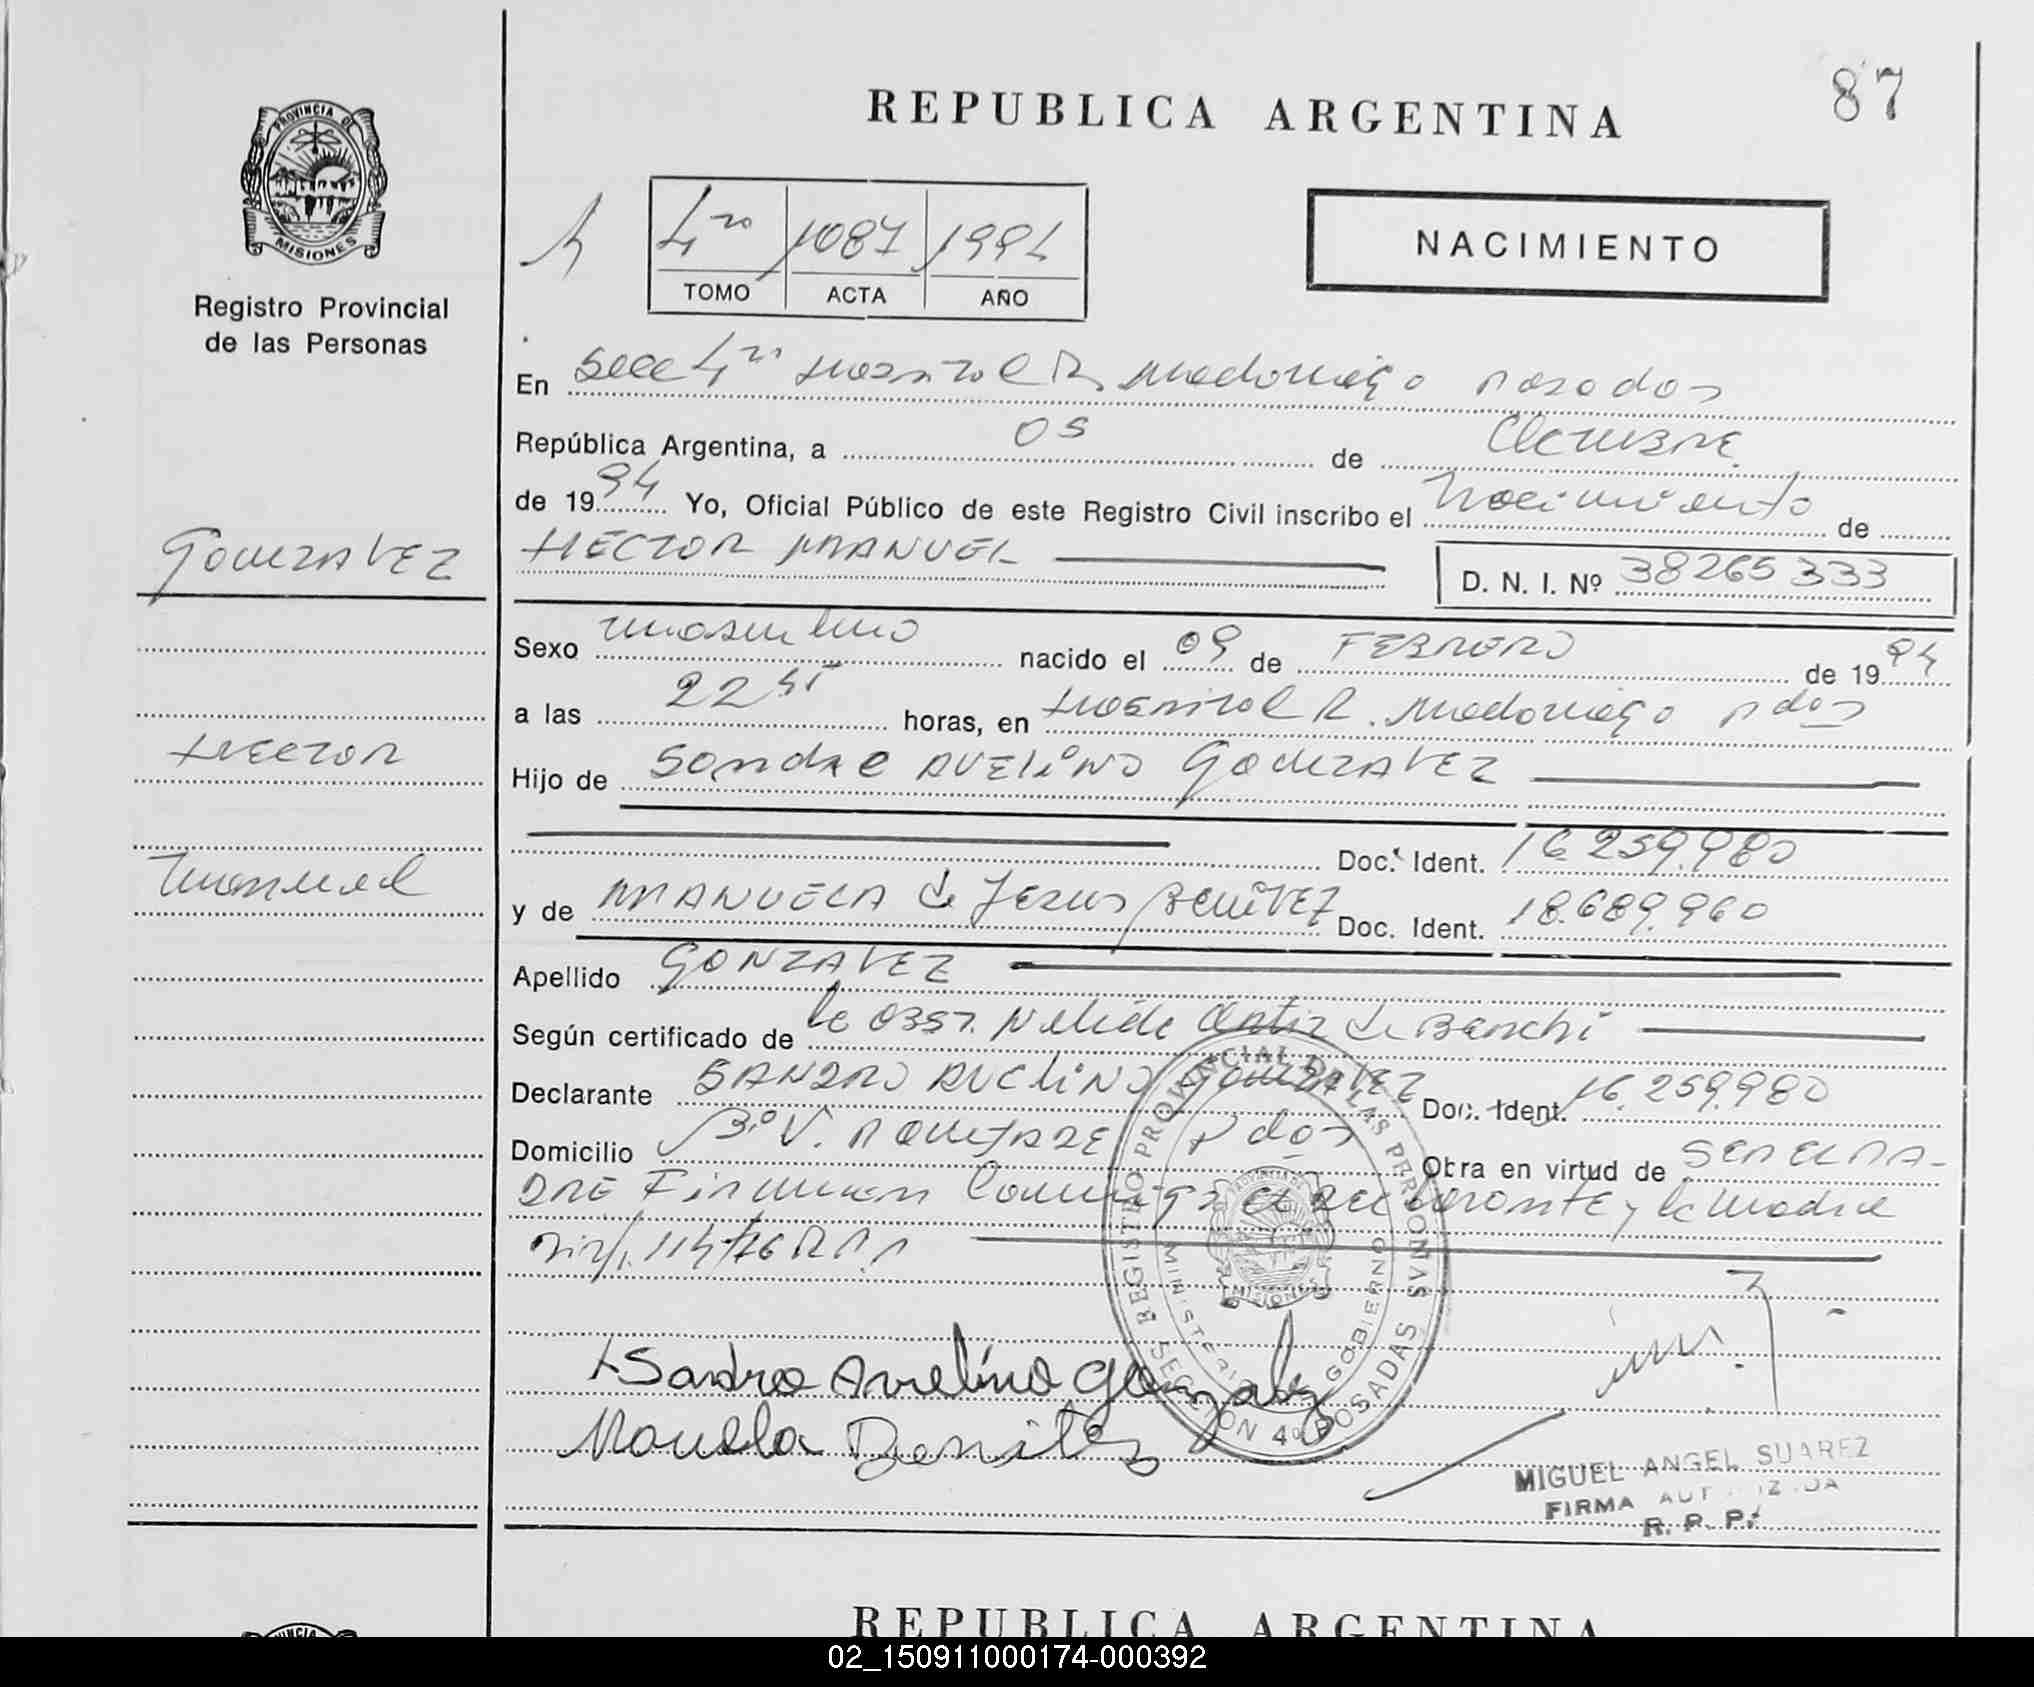 87
REPUBLICA ARGENTINA
PROVINCIA DE
MISIONES
Registro Provincial
de las Personas
4to 1087 1994
TOMO ACTA AÑO
NACIMIENTO
En Secc 4ta Hospital R. Madariaga Posadas
República Argentina, a 05 de Octubre
de 1994 Yo, Oficial Público de este Registro Civil inscribo el Nacimiento de
GONZALEZ
HECTOR MANUEL
D. N. I. Nº 38265333
Sexo masculino nacido el 09 de FEBRERO de 1994
a las 22 horas, en Hospital R. Madariaga Pdas
HECTOR
Hijo de Sandro AVELINO GONZALEZ
Doc. Ident. 16.259.980
Manuel
y de MANUELA de Jesus BENITEZ Doc. Ident. 18.689.960
Apellido GONZALEZ
Según certificado de la Obst. Nelida Ortiz de Banchi
Declarante SANDRO AVELINO GONZALEZ Doc. Ident. 16.259.980
Domicilio Bº V. Pdas Obra en virtud de SER EL PA-
DRE Firman Conmigo el declarante y la Madre
114/76 R.P.P
REGISTRO PROVINCIAL DE LAS PERSONAS
MINISTERIO GOBIERNO
MISIONES
SECCION 4º POSADAS
Sandro Avelino Gonzalez
Manuela Benitez
MIGUEL ANGEL SUAREZ
FIRMA AUTORIZADA
R. P. P.
REPUBLICA ARGENTINA
02_150911000174-000392